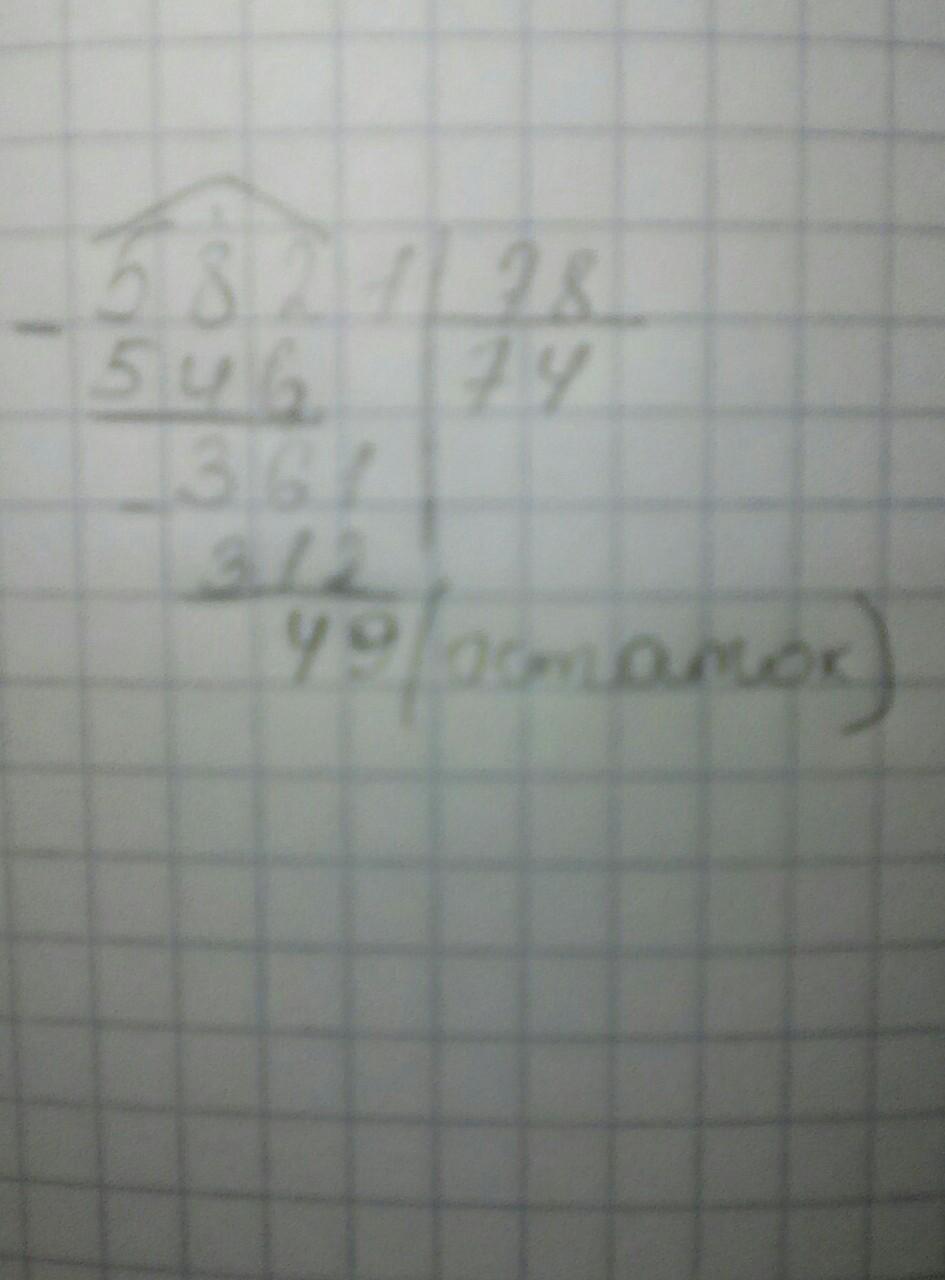 - 5821 | 78
546 | 74
- 361
312
49 (остаток)